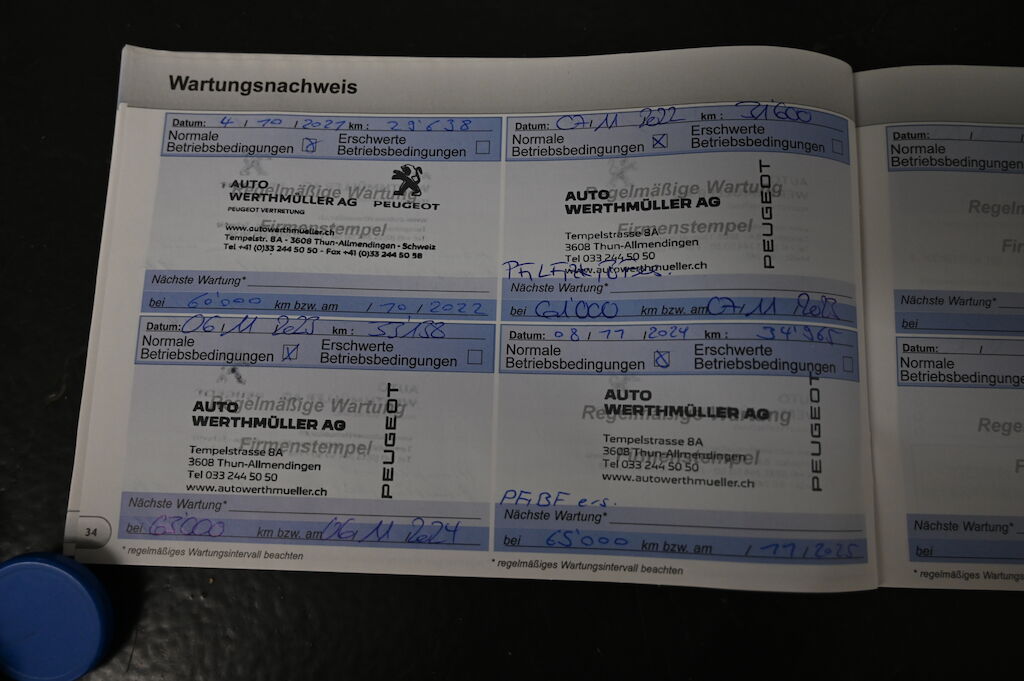 Wartungsnachweis
Datum: 4 / 10 / 2021 km : 29'638
Normale
Betriebsbedingungen
Erschwerte
Betriebsbedingungen
Regelmäßige Wartung
Firmenstempel
AUTO
WERTHMÜLLER AG
PEUGEOT VERTRETUNG
PEUGEOT
www.autowerthmueller.ch
Tempelstr. 8A - 3608 Thun-Allmendingen - Schweiz
Tel +41 (0)33 244 50 50 - Fax +41 (0)33 244 50 58
Nächste Wartung*
bei 60'000 km bzw. am / 10 / 2022
Datum: 07/11 2022 km : 31'600
Normale
Betriebsbedingungen
Erschwerte
Betriebsbedingungen
Regelmäßige Wartung
Firmenstempel
AUTO
WERTHMÜLLER AG
Tempelstrasse 8A
3608 Thun-Allmendingen
Tel 033 244 50 50
www.autowerthmueller.ch
PEUGEOT
Nächste Wartung*
bei 61'000 km bzw. am 07/11 2023
Datum: 06/11 2023 km : 33'138
Normale
Betriebsbedingungen
Erschwerte
Betriebsbedingungen
Regelmäßige Wartung
Firmenstempel
AUTO
WERTHMÜLLER AG
Tempelstrasse 8A
3608 Thun-Allmendingen
Tel 033 244 50 50
www.autowerthmueller.ch
PEUGEOT
Nächste Wartung*
bei 63'000 km bzw. am 06/11 2024
* regelmäßiges Wartungsintervall beachten
34
Datum: 08 / 11 / 2024 km : 34'965
Normale
Betriebsbedingungen
Erschwerte
Betriebsbedingungen
Regelmäßige Wartung
Firmenstempel
AUTO
WERTHMÜLLER AG
Tempelstrasse 8A
3608 Thun-Allmendingen
Tel 033 244 50 50
www.autowerthmueller.ch
PEUGEOT
PF, BF ers.
Nächste Wartung*
bei 65'000 km bzw. am / 11 / 2025
* regelmäßiges Wartungsintervall beachten
Datum: / /
Normale
Betriebsbedingungen
Regelm
Firm
Nächste Wartung*
bei
Datum: /
Normale
Betriebsbedingungen
Rege
Fir
Nächste Wartung*
bei
* regelmäßiges Wartungs